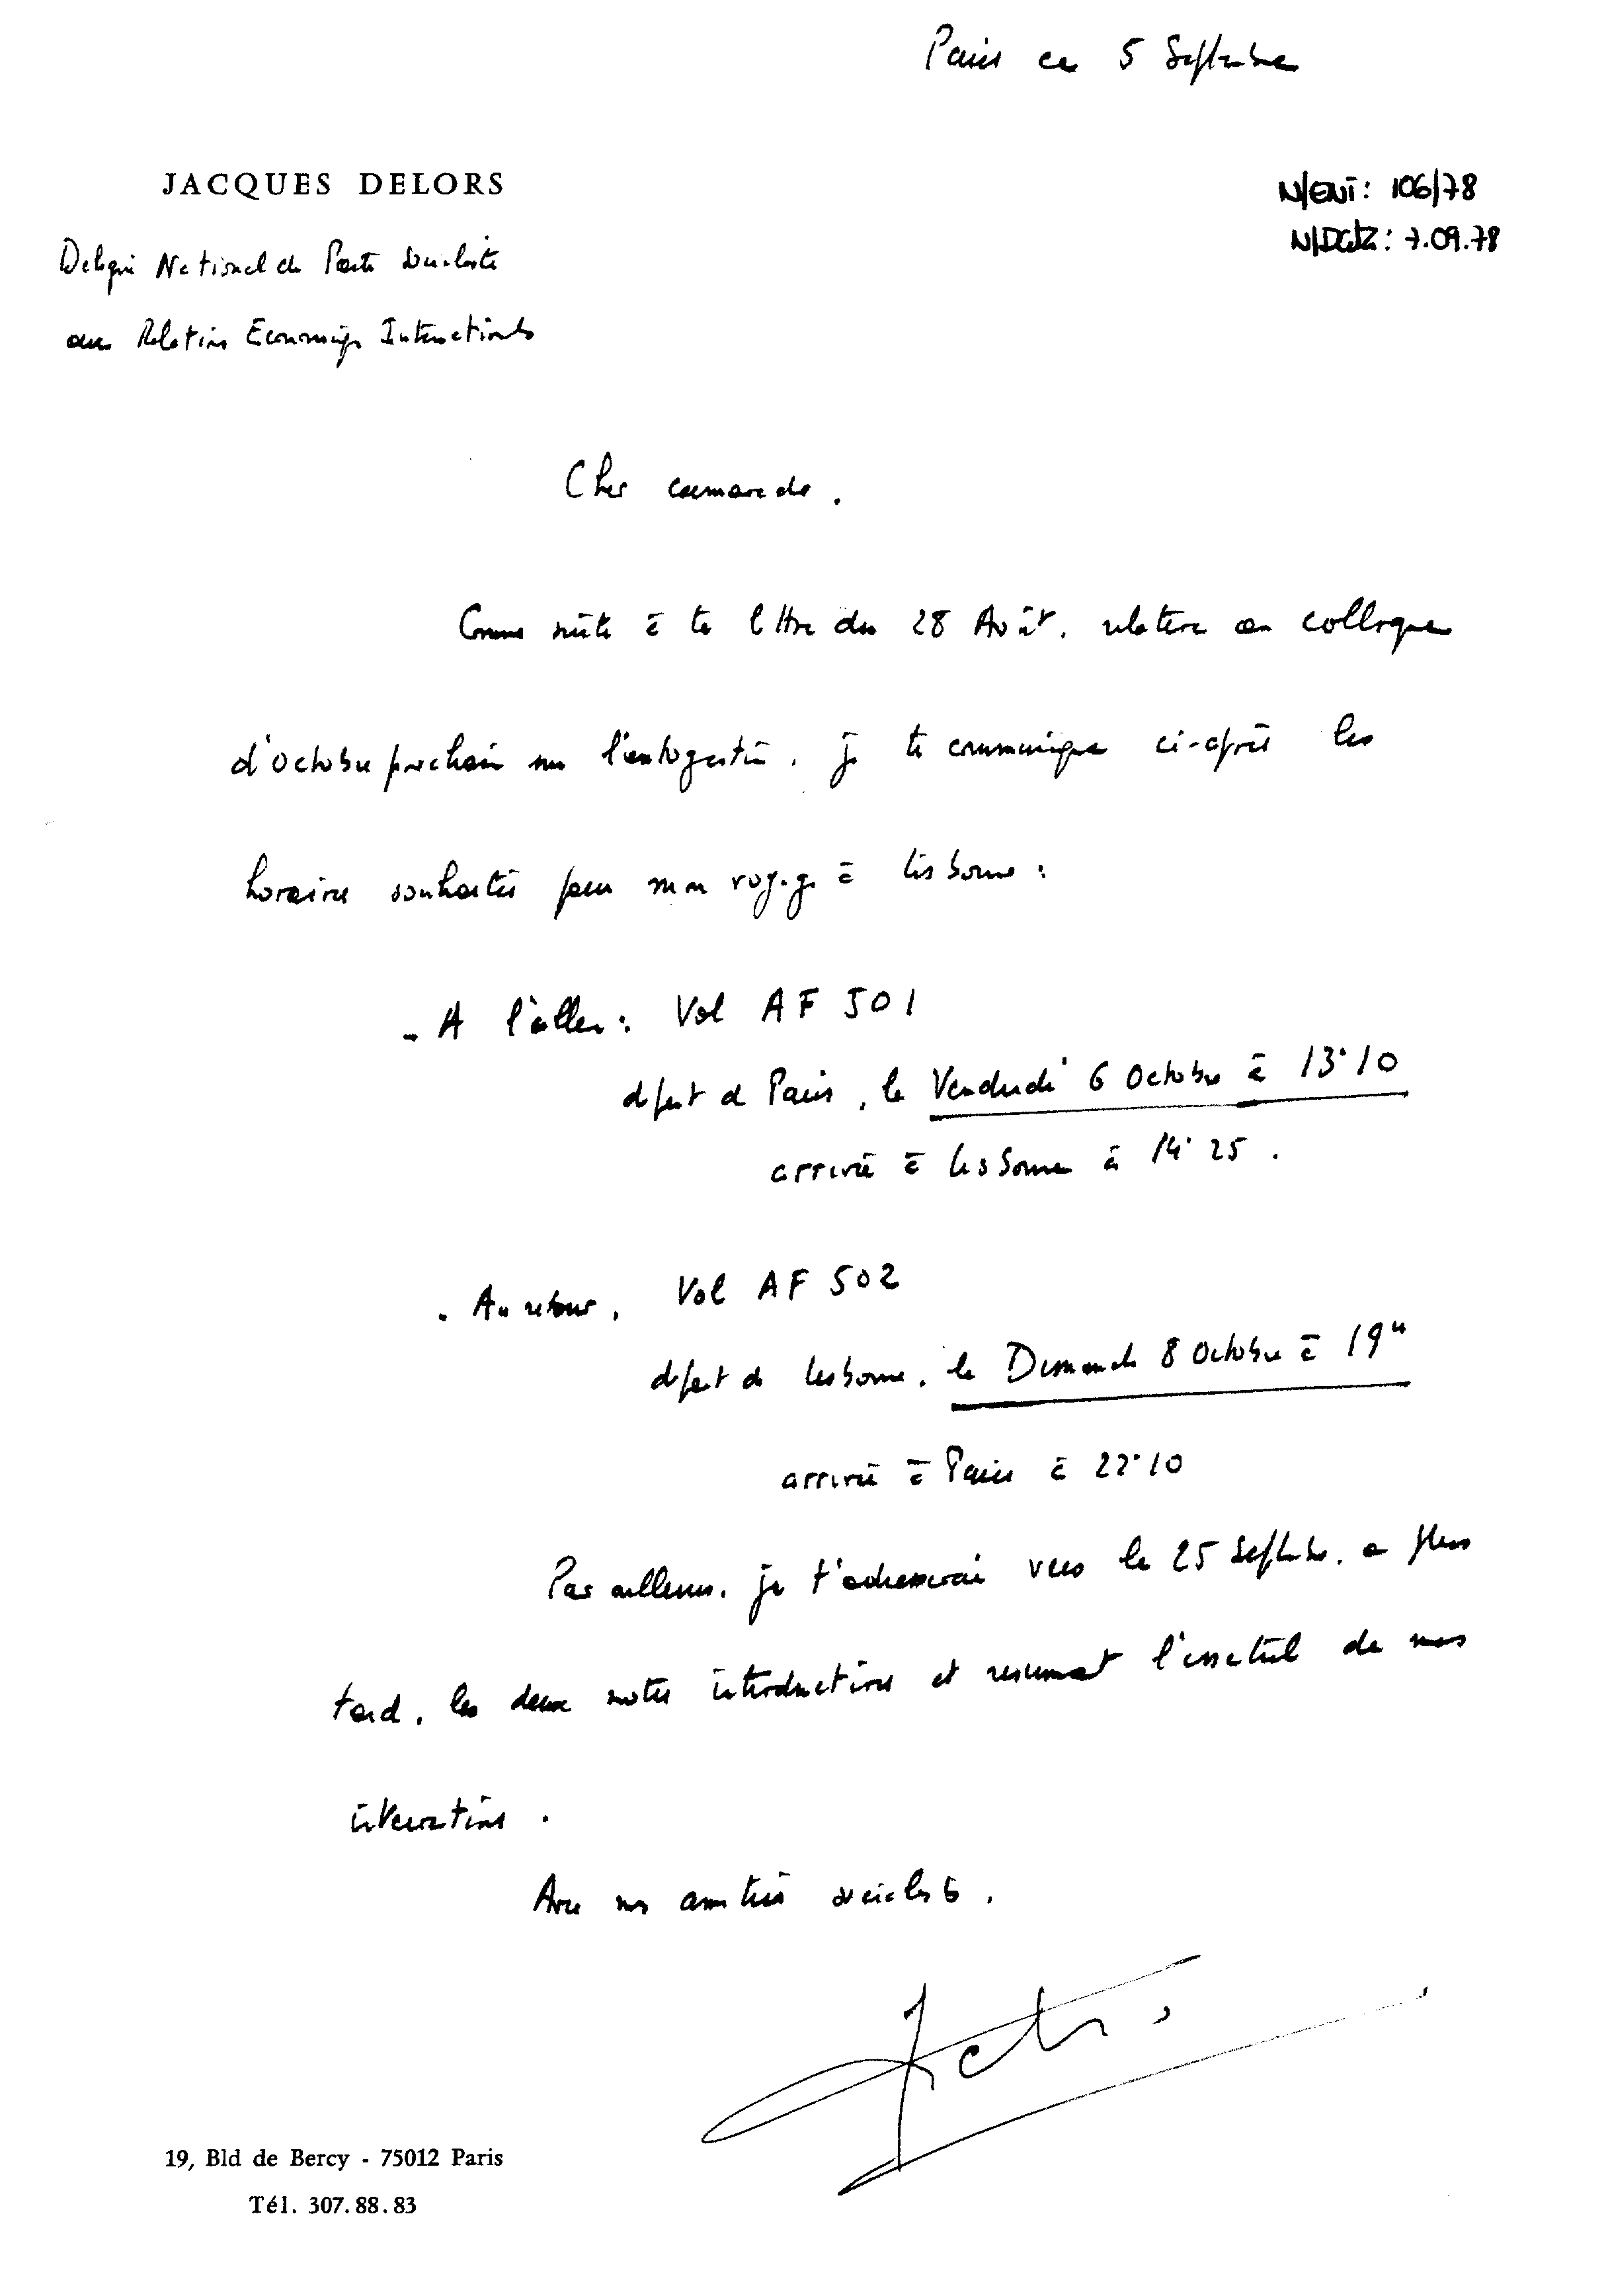 Paris ce 5 Septembre
JACQUES DELORS
N/ENT: 106/78
N/Data: 7.09.78
Délégué National du Parti Socialiste
aux Relations Economiques Internationales
Cher camarade,
Comme suite à ta lettre du 28 Août, relative au colloque
d'octobre prochain sur l'autogestion, je te communique ci-après les
horaires souhaités pour mon voyage à Lisbonne :
- A l'aller : Vol AF 501
départ de Paris, le Vendredi 6 Octobre à 13h10
arrivée à Lisbonne à 14h25.
- Au retour, Vol AF 502
départ de Lisbonne, le Dimanche 8 Octobre à 19h
arrivée à Paris à 22h10
Par ailleurs, je t'adresserai vers le 25 Septembre, au plus
tard, les deux notes introductives et résumant l'essentiel de mes
interventions.
Avec mes amitiés socialistes,
19, Bld de Bercy - 75012 Paris
Tél. 307.88.83